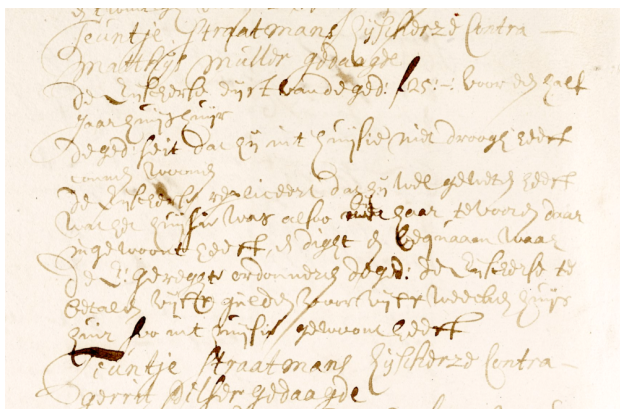 Teuntje Straatmans Eijscherze Contra —
Matthijs Muller gedaagde
De Eijscherse eijst van de ged: f 25:-: voor een half
Jaar huijshuijr
De ged: seit dat hij int huijsie niet droogh heeft
connen woonen
De Eijscherse repliceert dat hij wel geweten heeft
wat het huijsie was alsoo hij haar te vooren daar
in gewoont heeft, dight en bequaam waar
De E: geregte ordonneren de ged: de Eijscherse te
betalen vijftx gulden voor vijff weecken huijs
huur soo int huijsie gewoont heeft
Teuntje Straatmans Eijscherze Contra —
gerrit Pilser gedaagde